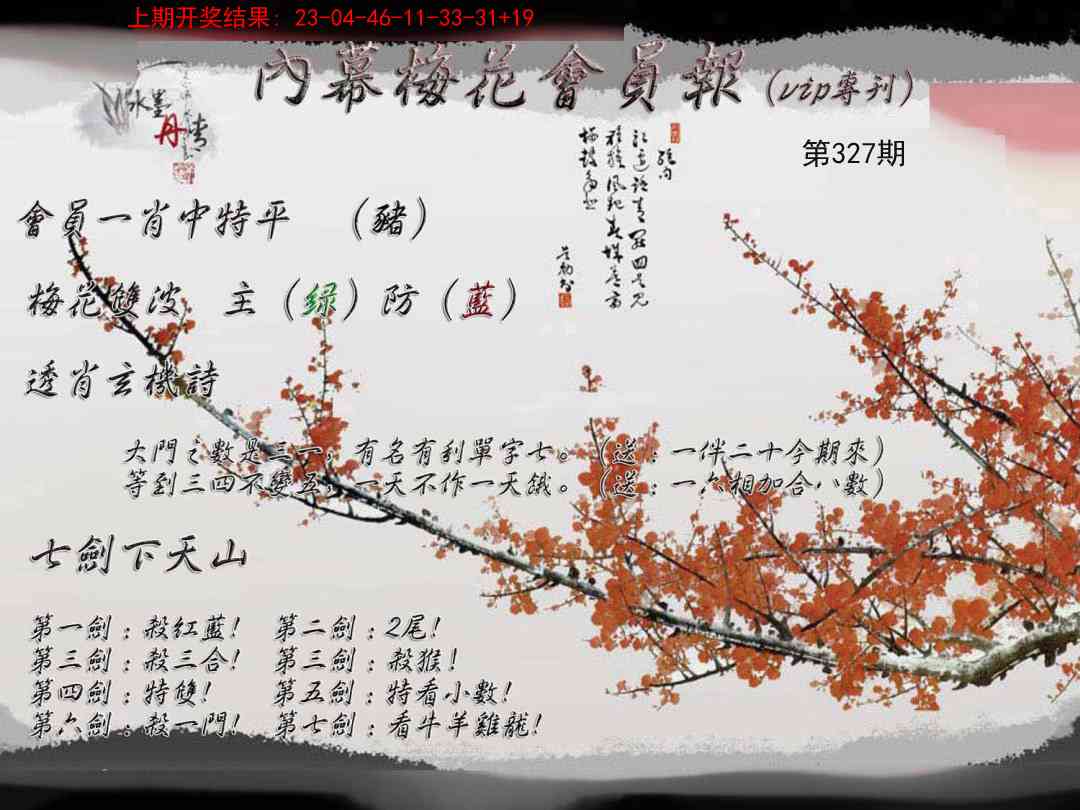 上期开奖结果: 23-04-46-11-33-31+19
內幕梅花會員報(vip專刊)
水墨
丹情
第327期
會員一肖中特平 (豬)
梅花雙波 主(绿)防(藍)
透肖玄機詩
大門之數是三一，有名有利單字七。(送:一伴二十今期來)
等到三四不變五，一天不作一天餓。(送:一六相加合八數)
七劍下天山
第一劍:殺紅藍! 第二劍:2尾!
第三劍:殺三合! 第三劍:殺猴!
第四劍:特雙! 第五劍:特看小數!
第六劍:殺一門! 第七劍:看牛羊雞龍!